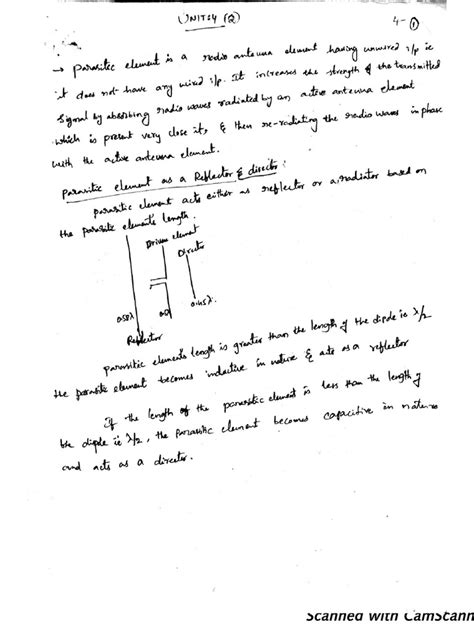 UNIT-4 (2)
4-①
→ parasitic element is a radio antenna element having unwired i/p ie
it does not have any wired i/p. It increases the strength of the transmitted
signal by absorbing radio waves radiated by an active antenna element
which is present very close it, & then re-radiating the radio waves in phase
with the active antenna element.
Parasitic element as a Reflector & director:
parasitic element acts either as reflector or a radiator based on
the parasitic element's length.
Driven element
Director
Reflector
parasitic element's length is greater than the length of the dipole ie λ/2
the parasitic element becomes inductive in nature & acts as a reflector
If the length of the parasitic element is less than the length of
the dipole ie λ/2, the parasitic element becomes capacitive in nature
and acts as a director.
Scanned with CamScann